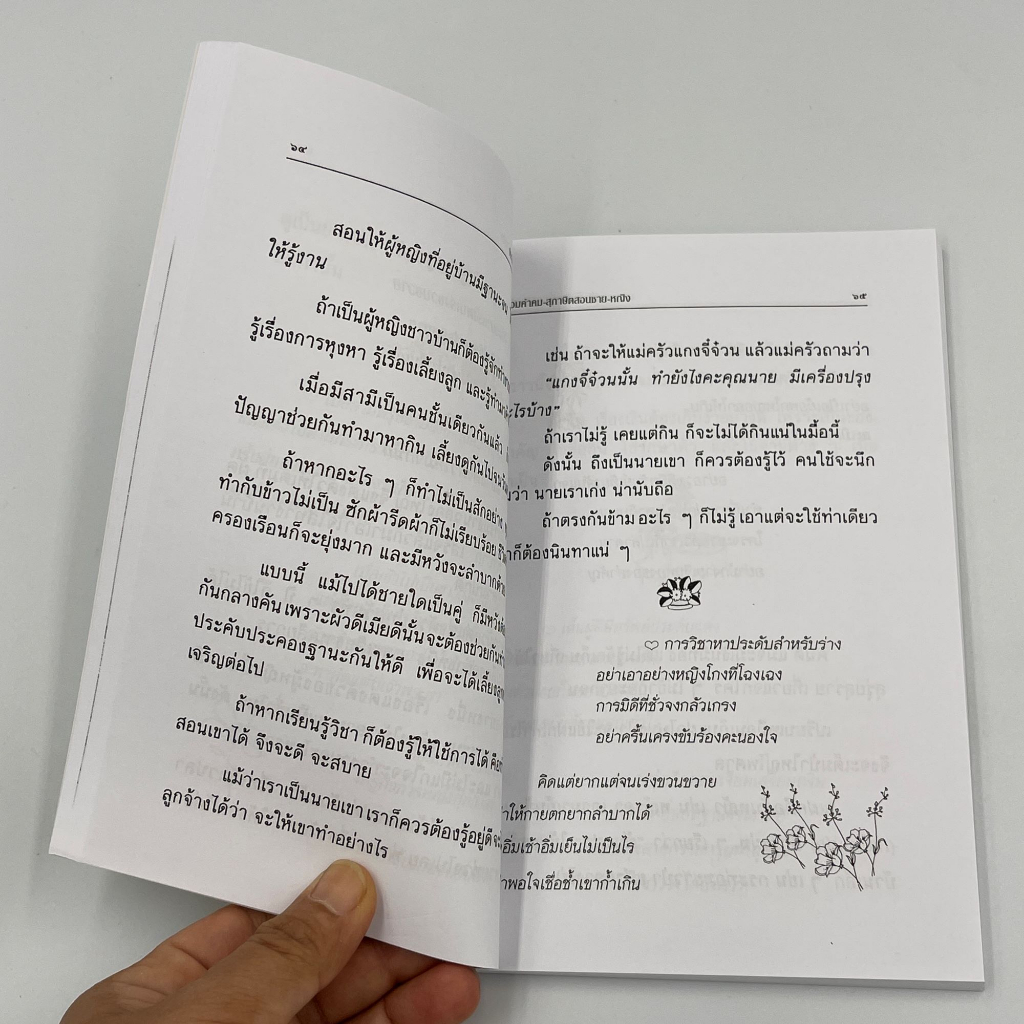 ๖๔
สอนให้ผู้หญิงที่อยู่บ้านมีฐานะ
ให้รู้งาน
ถ้าเป็นผู้หญิงชาวบ้านก็ต้องรู้จัก
รู้เรื่องการหุงหา รู้เรื่องเลี้ยงลูก และรู้
เมื่อมีสามีเป็นคนชั้นเดียวกันแล้ว
ปัญญาช่วยกันทำมาหากิน เลี้ยงดูกันไปจน
ถ้าหากอะไร ๆ ก็ทำไม่เป็นสักอย่าง
ทำกับข้าวไม่เป็น ซักผ้ารีดผ้าก็ไม่เรียบร้อย
ครองเรือนก็จะยุ่งมาก และมีหวังจะลำบาก
แบบนี้ แม้ไปได้ชายใดเป็นคู่ ก็มีหวัง
กันกลางคัน เพราะผัวดีเมียดีนั้น จะต้องช่วยกัน
ประคับประคองฐานะกันให้ดี เพื่อจะได้เลี้ยงลูก
เจริญต่อไป
ถ้าหากเรียนรู้วิชา ก็ต้องรู้ให้ใช้การได้
สอนเขาได้ จึงจะดี จะสบาย
แม้ว่าเราเป็นนายเขา เราก็ควรต้องรู้อยู่ดี
ลูกจ้างได้ว่า จะให้เขาทำอย่างไร
คำคม-สุภาษิตสอนชาย-หญิง ๖๕
เช่น ถ้าจะให้แม่ครัวแกงจี๋จ๋วน แล้วแม่ครัวถามว่า
“แกงจี๋จ๋วนนั้น ทำยังไงคะคุณนาย มีเครื่องปรุง
อะไรบ้าง”
ถ้าเราไม่รู้ เคยแต่กิน ก็จะไม่ได้กินแน่ในมื้อนี้
ดังนั้น ถึงเป็นนายเขา ก็ควรต้องรู้ไว้ คนใช้จะนึก
ว่า นายเราเก่ง น่านับถือ
ถ้าตรงกันข้าม อะไร ๆ ก็ไม่รู้ เอาแต่จะใช้ท่าเดียว
ก็ต้องนินทาแน่ ๆ
♡ การวิชาหาประดับสำหรับร่าง
อย่าเอาอย่างหญิงโกงที่โฉงเฉง
การมิดีที่ชั่วจงกลัวเกรง
อย่าครื้นเครงขับร้องคะนองใจ
คิดแต่ยากแต่จนเร่งขวนขวาย
ให้กายตกยากลำบากได้
อิ่มเช้าอิ่มเย็นไม่เป็นไร
พอใจเชื่อช้ำเขาก้ำเกิน